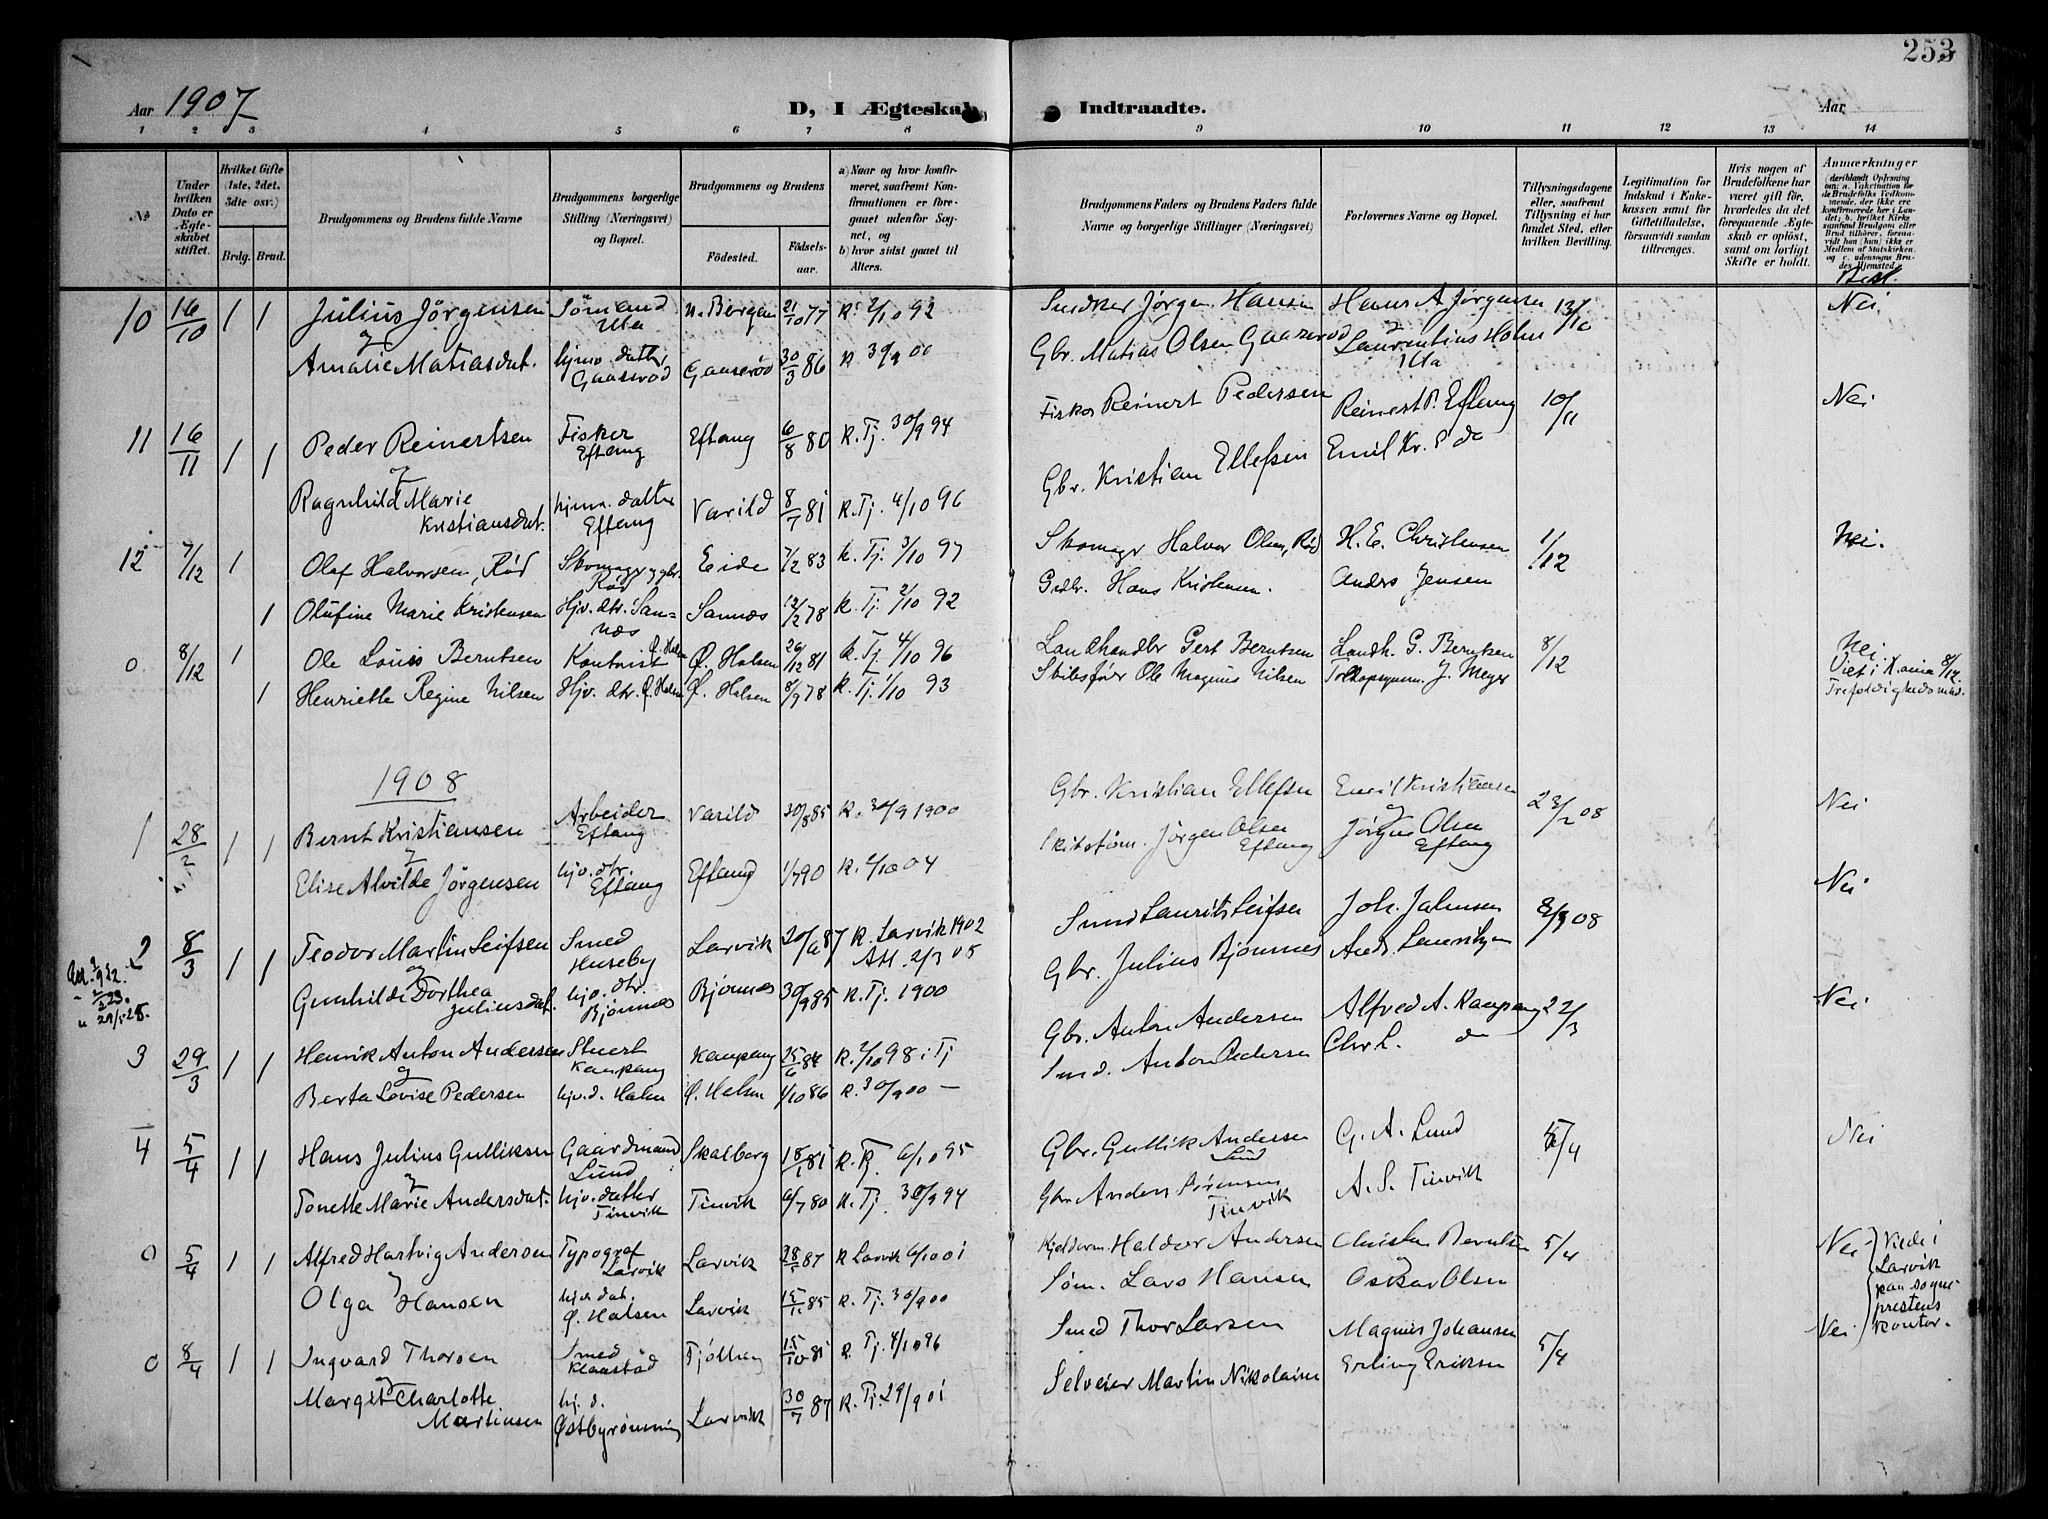 253
Aar 1907
D, I Ægteskab Indtraadte.
Aar
1 2 3 4 5 6 7 8 9 10 11 12 13 14
№
Under hvilken Dato er Ægteskabet stiftet.
Hvilket Gifte (1ste, 2det, 3dte osv.)
Brdg. Brud.
Brudgommens og Brudens fulde Navne
Brudgommens borgerlige Stilling (Næringsvei) og Bopæl.
Brudgommens og Brudens
Födested. Födselsaar.
a) Naar og hvor konfirmeret, saafremt Konfirmationen er foregaaet udenfor Sognet, og
b) hvor sidst gaaet til Alters.
Brudgommens Faders og Brudens Faders fulde Navne og borgerlige Stillinger (Næringsvei)
Forlovernes Navne og Bopæl.
Tillysningsdagene eller, saafremt Tillysning ei har fundet Sted, efter hvilken Bevilling.
Legitimation for Indskud i Enkekassen samt for Giftetilladelse, forsaavidt saadan tiltrænges.
Hvis nogen af Brudefolkene har været gift før, hvorledes da det foregaaende Ægteskab er oplöst, samt om lovligt Skifte er holdt.
Anmærkninger (deriblandt Oplysning om: a. Vakcination for de Brudefolks Vedkommende, der ikke ere konfirmerede her i Landet; b. hvilket Kirkesamfund Brudgom eller Brud tilhörer, forsaavidt han (hun) ikke er Medlem af Statskirken, og c. udensogns Brudes Hjemsted.
10 16/10 1 1 Julius Jörgensen Sömand Ula n. Bergen 21/10 77 K. 2/10 92 Snedker Jörgen Hansen Hans A Jörgensen 13/10 Nei
og
Amalie Matiasdat. hjmv. datter Gaaserød Gaaserød 30/3 86 K 30/9 00 Gbr. Matias Olsen Gaaserød Laurentius Holm Ula
11 16/11 1 1 Peder Reinertsen Fisker Eftang Eftang 6/8 80 K. Tj. 30/9 94 Fisker Reinert Pedersen Reinert P. Eftang 10/11 Nei
og
Ragnhild Marie Kristiansdat. hjmv. datter Eftang Varild 8/7 81 K. Tj. 4/10 96 Gbr. Kristian Ellefsen Emil Kr. E do
12 7/12 1 Olaf Halvorsen, Rød Skomager Rød Eide 7/2 83 K. Tj. 3/10 97 Skomagr Halvor Olsen, Rød H. E. Christensen 1/12 Nei.
1 Olufine Marie Kristensen Hjv. dtr. Sannæs Sannæs 12/2 78 K. Tj. 2/10 92 Grdbr. Hans Kristensen. Anders Jensen
0 8/12 1 Ole Louis Berntsen Kontorist Ø. Halsen Ø. Halsen 26/12 81 K. Tj. 4/10 96 Landhandler Gert Berntsen Landh. G. Berntsen 8/12 Nei
1 Henriette Regine Nilsen Hjv. dtr. Ø. Halsen Ø. Halsen 8/9 78 K. Tj. 1/10 93 Skibsfører Ole Magnus Nilsen J. Meyer Viet i 8/12.
1908
1 28/2 1 1 Bernt Kristiansen Arbeider Eftang Varild 30/8 85 K. 30/9 1900 Gbr. Kristian Ellefsen Emil Kristiansen 23/2 08 Nei
og
Elise Alvilde Jörgensen hjv. dtr. Eftang Eftang 1/7 90 K. 2/10 04 Jörgen Olsen Eftang Jörgen Olsen Eftang Nei
2 8/3 1 1 Teodor Martin Leifsen Smed Huseby Larvik K. Larvik 1902 Smed Laurits Leifsen Joh. Johnsen 8/3 08
og
Gunhilde Dorthea Juliusdat. hjv. dtr. Bjönnes Bjönnes 30/9 85 K. Tj. 1900 Gbr. Julius Bjönnes Nei
3 29/3 1 1 Henrik Anton Andersen Stuert Kaupang Kaupang 25/6 84 K. 2/10 98 i Tj Gbr. Anton Andersen Alfred A. Kaupang 22/3
og
Berta Lovise Pedersen hjv. d. Halsn Ø. Halsn 1/10 86 K. 30/9 00 — Smd. Anton Pedersen Chr L. do
4 5/4 1 1 Hans Julius Gulliksen Gaardmand Lund Skalberg 18/1 81 K. Tj. 6/10 95 Gbr. Gullik Andersen Lund G. A. Lund 5/4 Nei
og
Tonette Marie Andersdat. hjv. datter Tinvik Tinvik 6/7 80 K. Tj. 30/9 94 Gbr Anders Sörensen Tinvik A. S. Tinvik
0 5/4 1 1 Alfred Hartvig Andersen Typograf Larvik Larvik 87 K Larvik 6/10 01 Haldor Andersen Christen Berntsen 5/4 Nei Viede i Larvik paa sogneprestens kontor.
Olga Hansen hjv dat. Ø. Halsen Larvik 85 K. Tj. 30/9 00 Söm. Lars Hansen Oskar Olsen
0 8/4 1 1 Ingvard Thorsen Smed Klaastad Tjölling 15/10 81 K. Tj. 4/10 96 Smed Thor Larsen Magnus Johansen 5/4 Nei
og
Margit Charlotte Martinsen hj. d. Østbyrønning Larvik 30/7 87 K. Tj. 29/9 01 Selveier Martin Nikolaisen Erling Eriksen